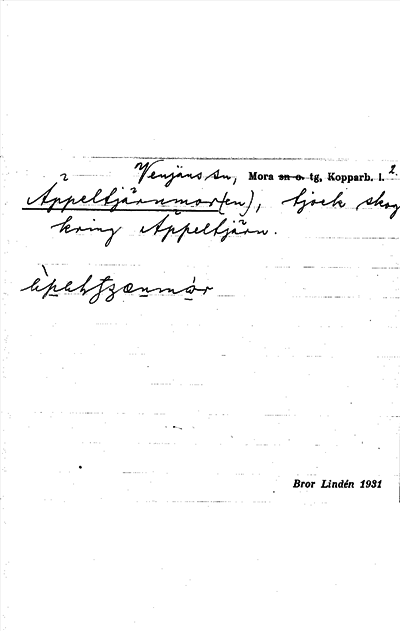 Venjans sn, Mora sn o. tg, Kopparb. l. 2.
Äppeltjärnmor(en), tjock skog
kring Äppeltjärn.
Bror Lindén 1931